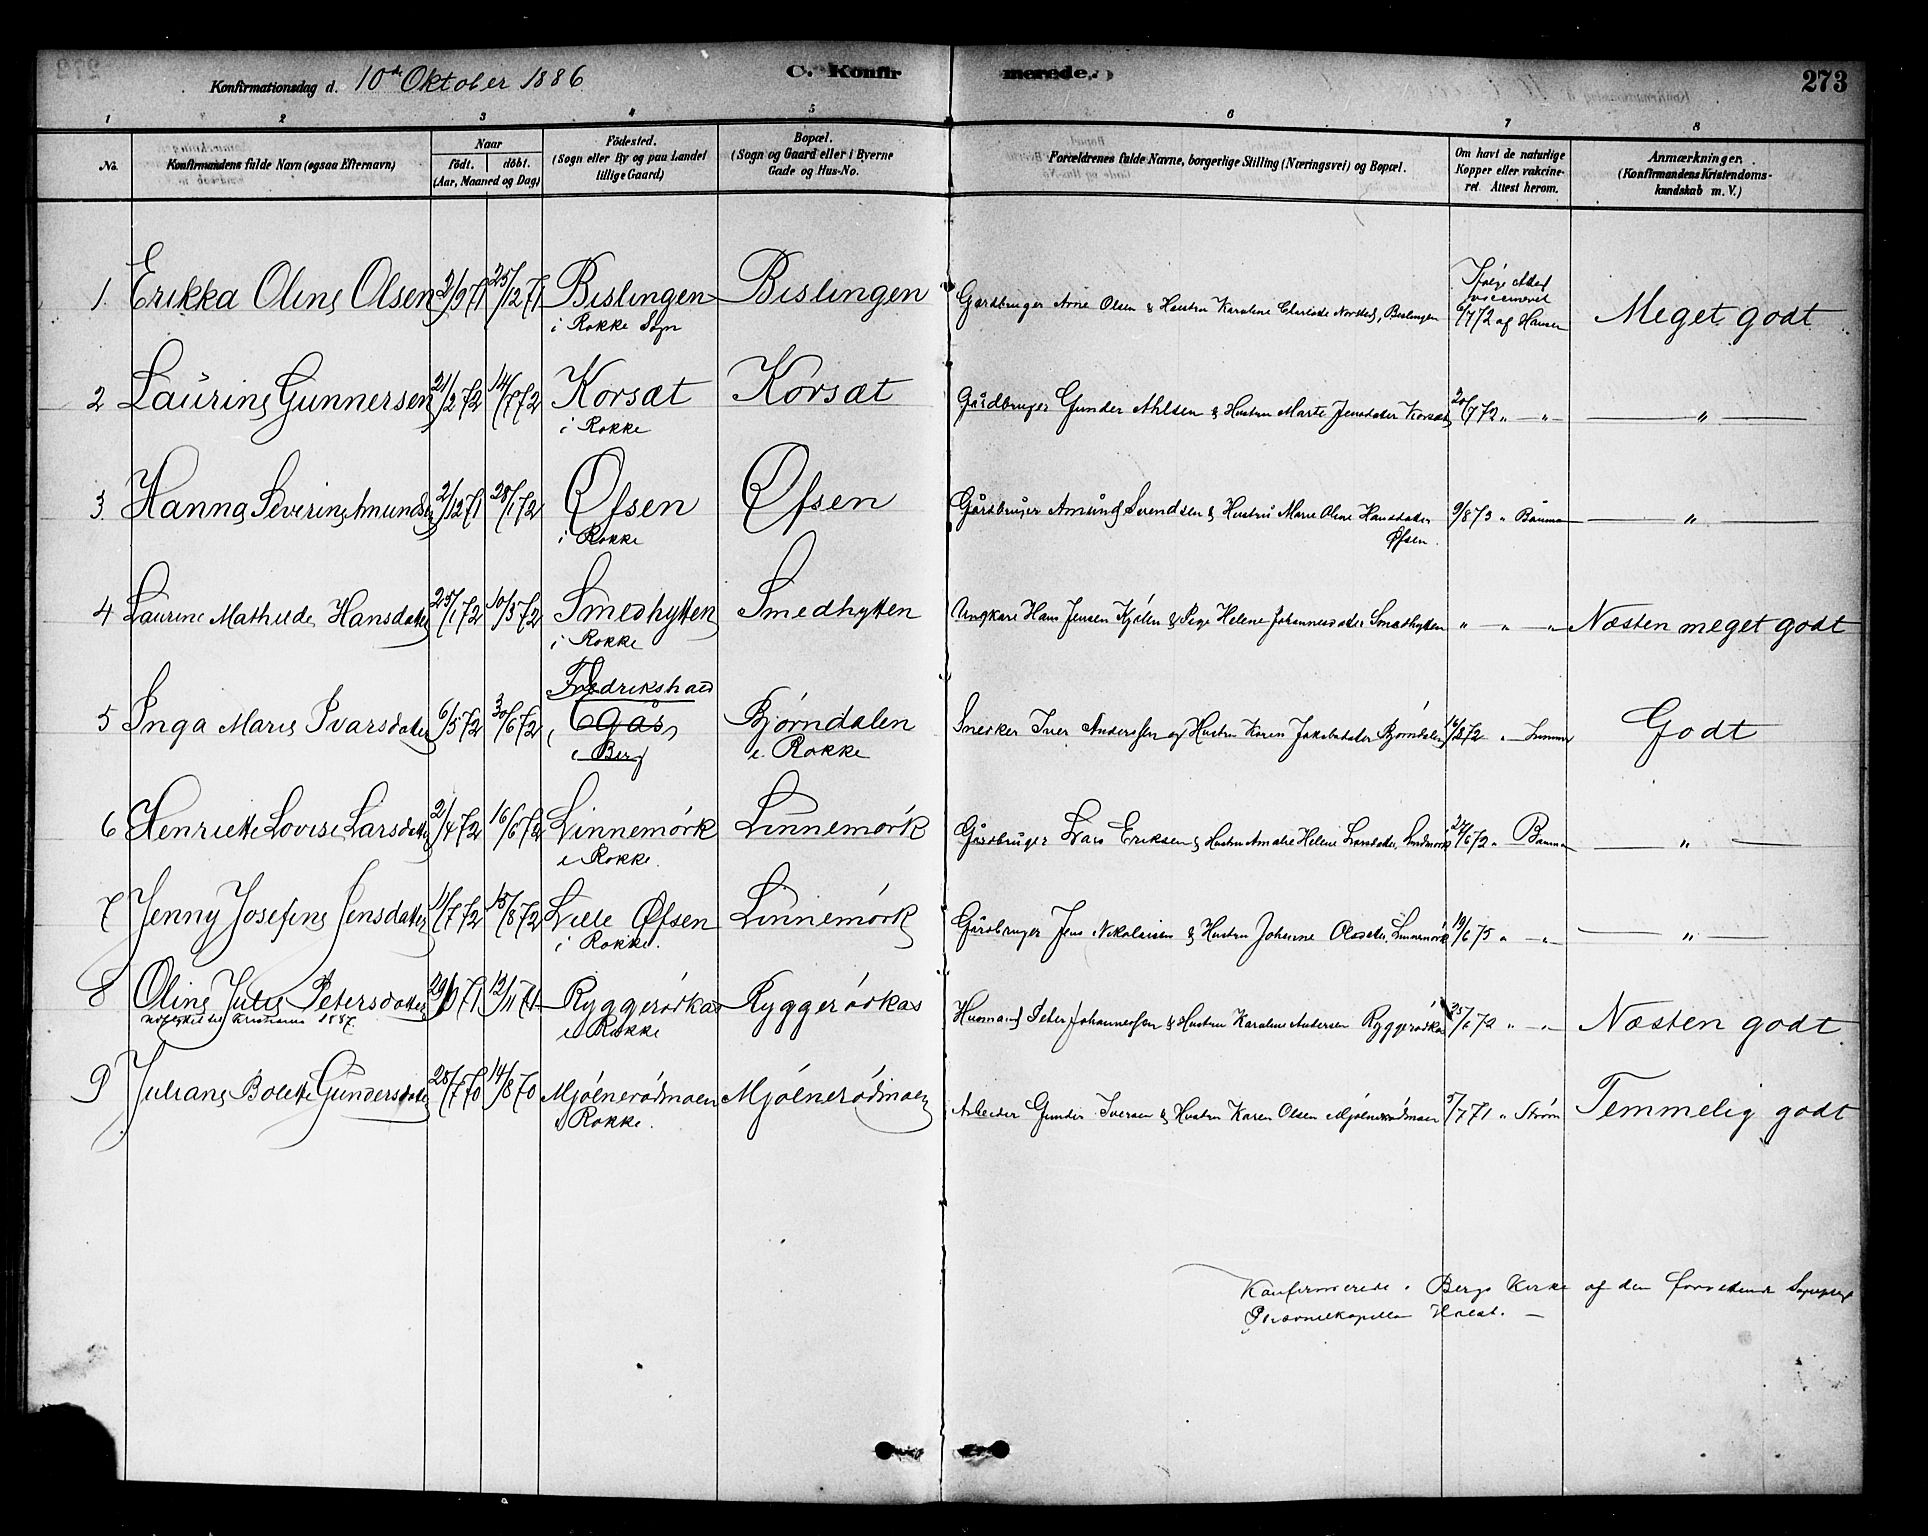 Konfirmationsdag d. 10de Oktober 1886
C. Konfirmerede.
273
1 2 3 4 5 6 7 8
No.
Konfirmandens fulde Navn (ogsaa Efternavn)
Naar
födt. döbt.
(Aar, Maaned og Dag)
Födested.
(Sogn eller By og paa Landet
tillige Gaard)
Bopæl.
(Sogn og Gaard eller i Byerne
Gade og Hus-No.
Forældrenes fulde Navne, borgerlige Stilling (Næringsvei) og Bopæl.
Om havt de naturlige
Kopper eller vakcine-
ret. Attest herom.
Anmærkninger.
(Konfirmandens Kristendoms-
kundskab m. V.)
1. Erikka Oline Olsen 2/9 71 25/12 71 Bislingen Bislingen Gardbruger Arne Olsen & Hustru Karoline Norsted, Bislingen 6/7 72 af Hansen Meget godt
i Rokke Sogn
2 Laurine Gunnersen 21/2 72 14/7 72 Korsæt Korsæt Gårdbruger Gunder Ahlsen & Hustru Marte Jensdater Korsæt 20/7 72 " — " — " —
i Rokke
3. Hanna Severine Amundsen 2/12 71 28/1 72 Øfsen Øfsen Gårdbruger Amund Svendsen & Hustru Marie Oline Hansdater 9/8 73 " Bauman — " —
i Rokke
Øfsen.
4 Laurine Mathilde Hansdatter 25/1 72 10/3 72 Smedhytten Smedhytten Ungkarl Hans Jensen Kjölen & Pige Helene Johannesdater Smedhytten " — " — " Næsten meget godt
i Rokke
Fredrikshald
5 Inga Marie Ivarsdatter 6/5 72 30/6 72 Bjórndalen Snedker Iver Anderssen og Hustru Karen Jakobsdater Bjórndalen Godt
i Berg
i Rokke
6 Henriette Lovise Larsdatter 2/4 72 16/6 72 Linnemórk Linnemórk Gårdbruger Lars Eriksen & Hustru Amalie Helene 27/6 72 " Bauman — " —
i Rokke.
7 Jenny Josefine Jensdatter 11/7 72 15/8 72 Lille Øfsen Linnemórk Gårdbruger Jens Nikolaisen & Hustru Johanne Olsdater, Linnemórk 19/6 75 " — " — " —
i Rokke.
8 Oline Julie Petersdatter 29/9 71 12/11 71 Ryggeródkas Ryggeródkas Husmand Peter Johannessen & Hustru Karoline Andersen Ryggeródkas 25/6 72 " — " Næsten godt
udflyttet til Kristiania 1887.
i Rokke
9 Juliane Bolette Gundersdatter 28/7 70 14/8 70 Mjólneródmoen Mjólneródmoen Arbeider Gunder Iversen & Hustru Karen Olsen Mjólneródmoen 5/7 71 " Ström Temmelig godt
i Rokke.
Konfirmerede i Bergs Kirke af den
Personelkapellan Holst. —